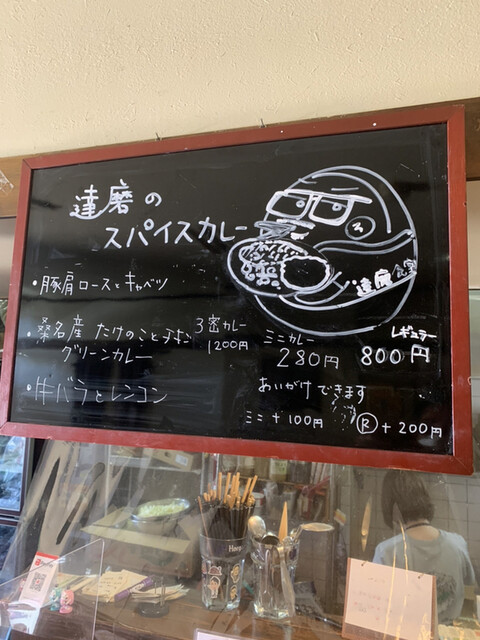 達磨の
スパイスカレー
ろ
達磨食堂
・豚肩ロースとキャベツ
・桑名産 たけのこと
グリーンカレー
・牛バラとレンコン
3密カレー
1200円
ミニカレー
280円
レギュラー
800円
あいがけできます
ミニ+100円
R+200円